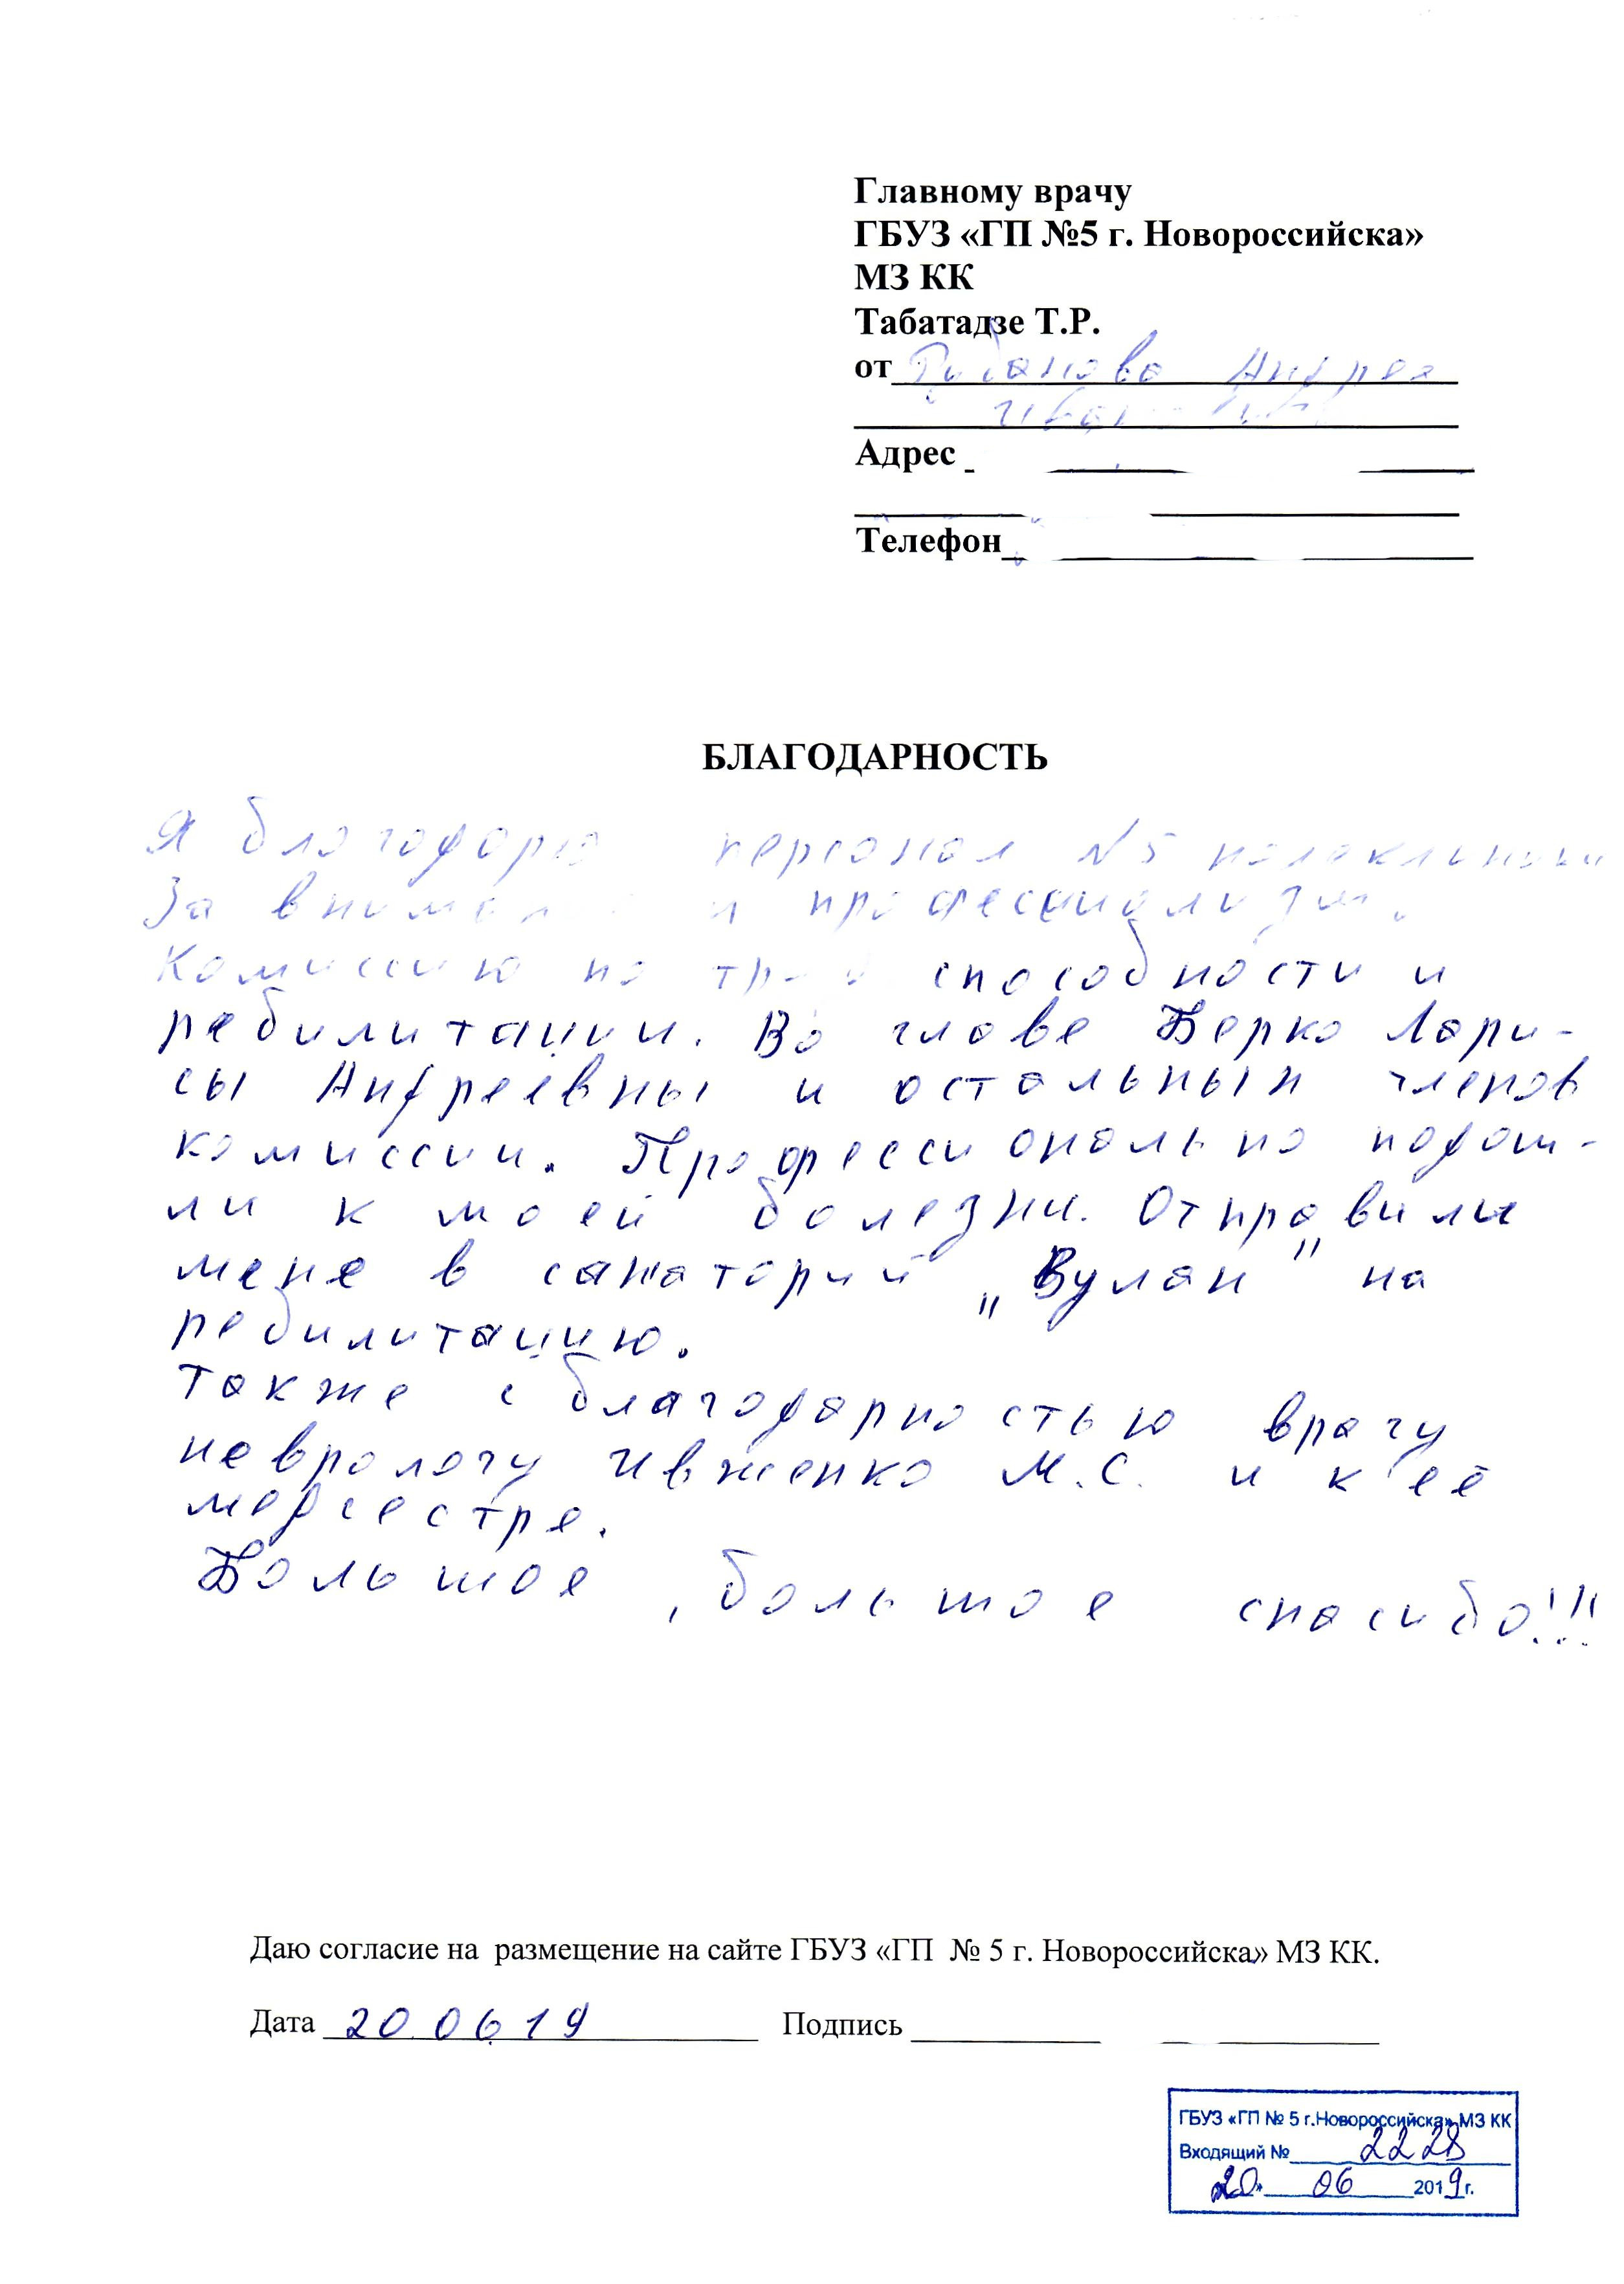 Главному врачу
ГБУЗ «ГП №5 г. Новороссийска»
МЗ КК
Табатадзе Т.Р.
от Андрея
Адрес
Телефон
БЛАГОДАРНОСТЬ
Я благодарю персонал №5 
За и профессионализм.
Комиссию по способности и
ребилитации. Во главе Берко Лари-
сы Андреевны и остальным членов
комиссии. Профессионально подош-
ли к моей болезни. Отправили
мене в санаторий „Вулан" на
ребилитацию.
Также с благодарностью врачу
неврологу Ивженко М.С. и к её
медсестре.
Большое, большое спасибо!!!
Даю согласие на размещение на сайте ГБУЗ «ГП № 5 г. Новороссийска» МЗ КК.
Дата 20 06 19 Подпись
ГБУЗ «ГП № 5 г.Новороссийска» МЗ КК
Входящий № 2228
20» 06 2019г.